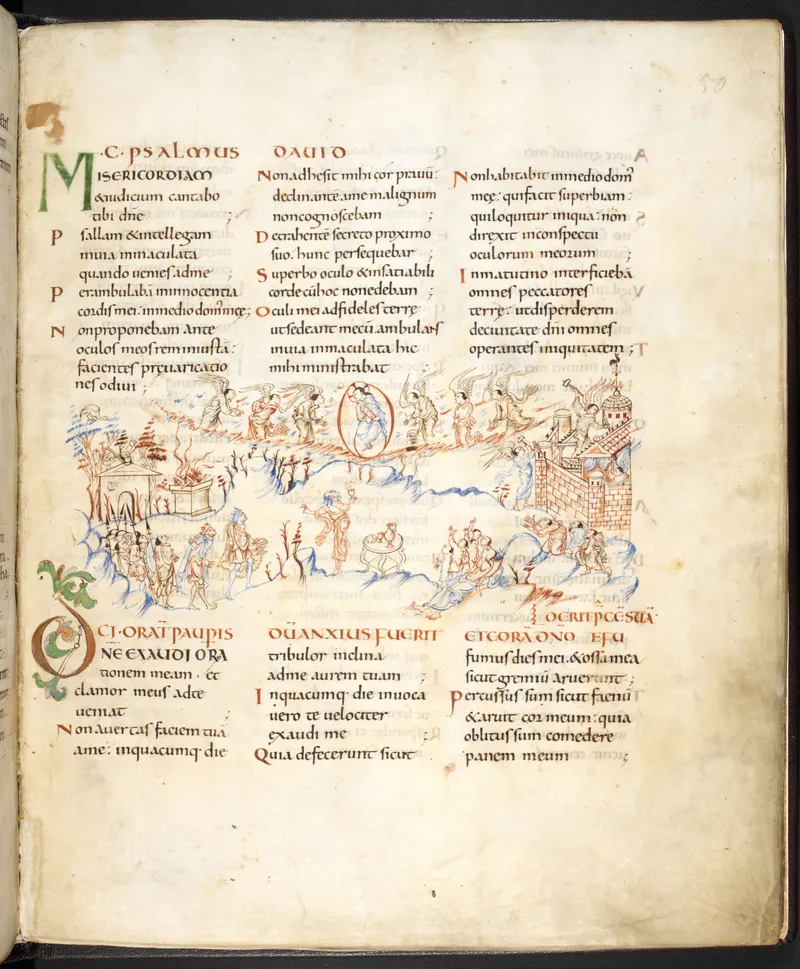 ·C· PSALMUS DAUID
MISERICORDIAM
&iudicium cantabo
tibi dñe ;
Psallam &intellegam
inuia inmaculata
quando uenies adme ;
Perambulabā ininnocentia
cordis mei: inmedio dom' meę;
Non proponebam ante
oculos meos rem iniustā:
facientes pręuaricatio
nes odiui ;
Non adhesit mihi cor prauū:
declinantē ame malignum
non cognoscebam ;
Detrahentē secreto proximo
suo: hunc persequebar ;
Superbo oculo &insatiabili
corde cūhoc non edebam ;
Oculi mei adfideles terrę
utsedeant mecū ambulans
inuia inmaculata hic
mihi ministrabat
Non habitabit inmedio dom'
meę: qui facit superbiam:
qui loquitur iniqua: non
direxit inconspectu
oculorum meorum ;
Inmatutino interficiebā
omnes peccatores
terrę: utdisperderem
deciuitate dñi omnes
operantes iniquitatem ;
·CI· ORAT̄ PAUPIS QUŪ ANXIUS FUERIT
ET CORĀ DNO EFFU
DERIT P̄CĒ SUĀ·
DNE EXAUDI ORA
tionem meam · et
clamor meus adte
ueniat ;
Non auertas faciem tuā
ame: inquacumq· die
tribulor inclina
adme aurem tuam ;
Inquacumq· die inuoca
uero te uelociter
exaudi me ;
Quia defecerunt sicut
fumus dies mei · &ossa mea
sicut gremiū aruerunt ;
Percussus sum sicut faenū
&aruit cor meum: quia
oblitus sum comedere
panem meum ;